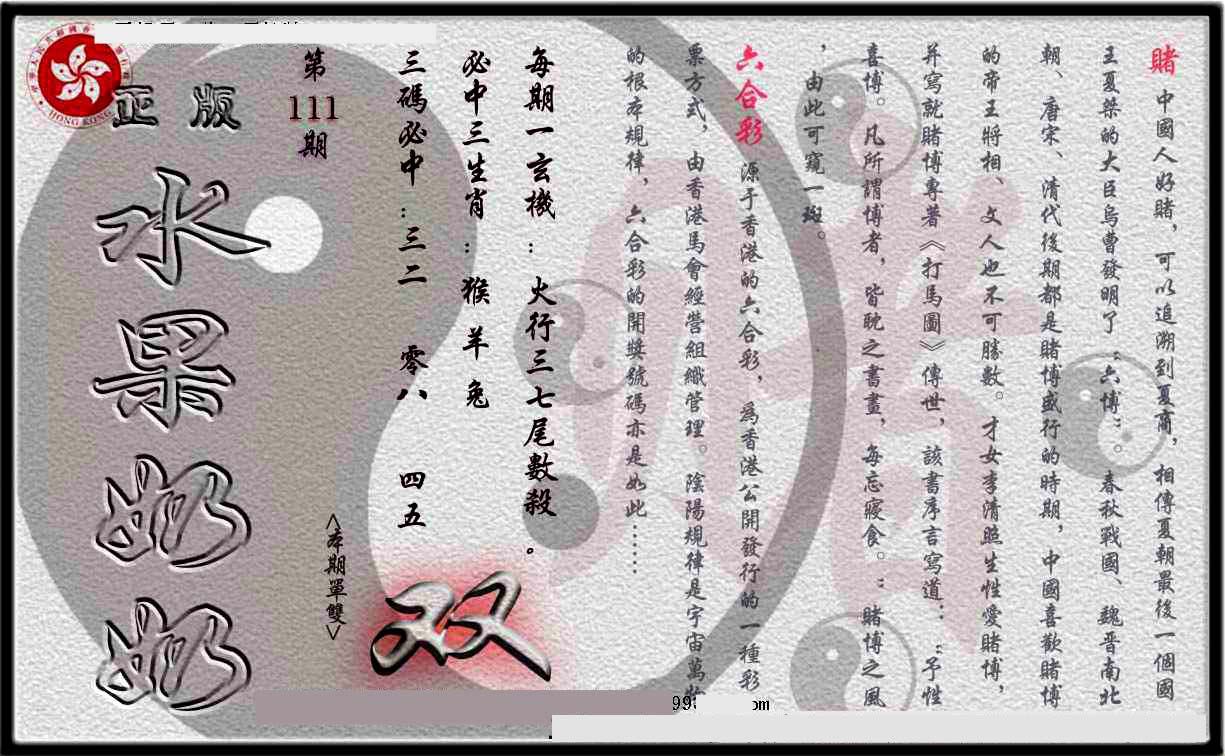 賭 中國人好賭，可以追溯到夏商，相傳夏朝最後一個國
王夏桀的大臣烏曹發明了“六博”。春秋戰國、魏晋南北
朝、唐宋、清代後期都是賭博盛行的時期，中國喜歡賭博
的帝王將相、文人也不可勝數。才女李清照生性愛賭博，
并寫就賭博專著《打馬圖》傳世，該書序言寫道：“予性
喜博。凡所謂博者，皆耽之書畫，每忘寢食。”賭博之風
，由此可窺一斑。
六合彩 源于香港的六合彩，為香港公開發行的一種彩
票方式，由香港馬會經營組織管理。陰陽規律是宇宙萬物
的根本規律，六合彩的開獎號碼亦是如此……
每期一玄機：火行三七尾數殺。
必中三生肖：猴 羊 兔
三碼必中：三二 零八 四五
<本期單雙>
双
第
111
期
正版
水果奶奶
HONG KONG